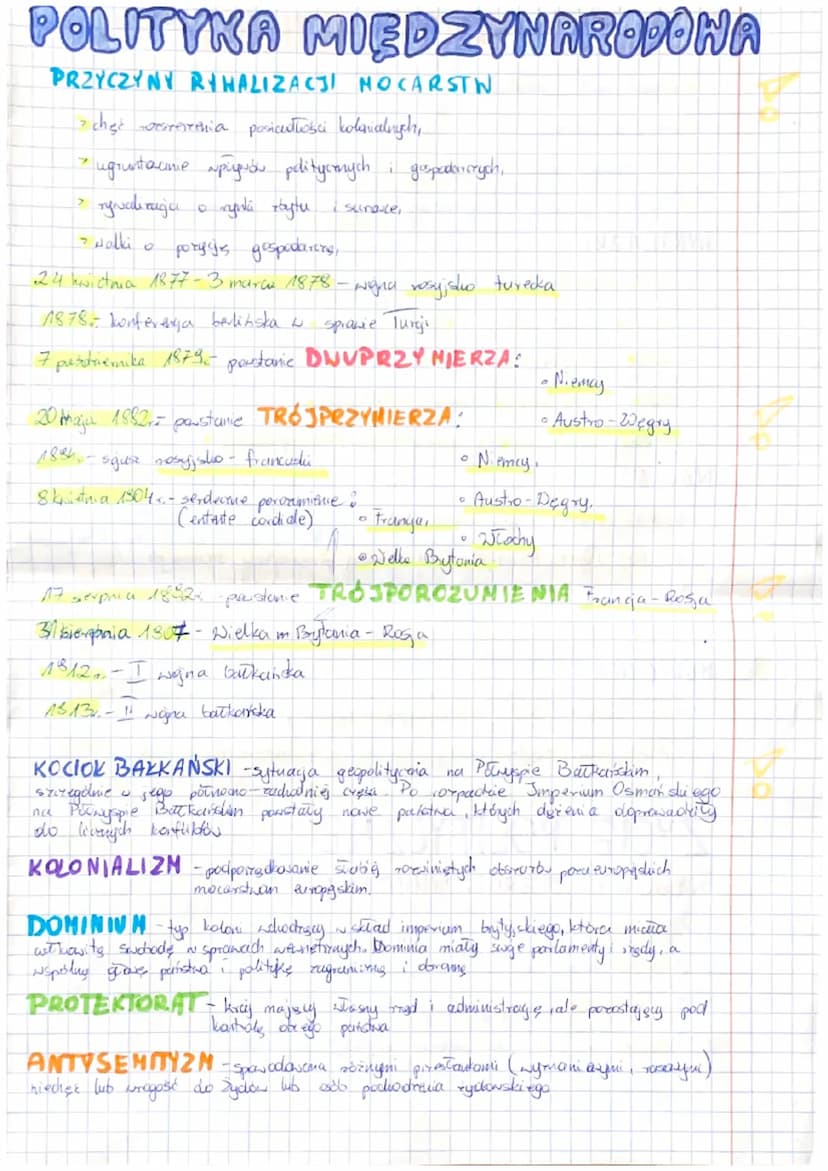 POLITYKA MIĘDZYNARODOWA
PRZYCZYNY RYWALIZACJI MOCARSTW
> chęć rozszerzenia posiadłości kolonialnych,
> ugruntowanie wpływów politycznych i gospodarczych,
> rywalizacja o rynki zbytu i surowce,
> walki o pozycję gospodarczą,
24 kwietnia 1877 - 3 marca 1878 - wojna rosyjsko turecka
1878r. - konferencja berlińska w sprawie Turcji
7 października 1879r. - powstanie DWUPRZYMIERZA:
• Niemcy
• Austro-Węgry
20 maja 1882r. - powstanie TRÓJPRZYMIERZA:
• Niemcy,
• Austro-Węgry,
• Włochy
- sojusz rosyjsko - francuski
8 kwietnia 1904r. - serdeczne porozumienie:
(entente cordiale)
• Francja,
• Wielka Brytania
17 sierpnia 1892r. powstanie TRÓJPOROZUMIENIA Francja - Rosja
31 sierpnia 1907 - Wielka Brytania - Rosja
1912r. - I wojna bałkańska
1913r. - II wojna bałkańska
KOCIOŁ BAŁKAŃSKI - sytuacja geopolityczna na Półwyspie Bałkańskim,
szczególnie w jego północno-zachodniej części. Po rozpadzie Imperium Osmańskiego
na Półwyspie Bałkańskim powstały nowe państwa, których dążenia doprowadziły
do licznych konfliktów
KOLONIALIZM - podporządkowanie słabiej rozwiniętych obszarów pozaeuropejskich
mocarstwom europejskim.
DOMINIUM - typ kolonii wchodzący w skład imperium brytyjskiego, która miała
całkowitą swobodę w sprawach wewnętrznych. Dominia miały swoje parlamenty i rządy, a
wspólną głowę państwa i politykę zagraniczną i obronną
PROTEKTORAT - kraj mający własny rząd i administrację, ale pozostający pod
kontrolą obcego państwa
ANTYSEMITYZM - spowodowana różnymi przesłankami (wyznaniowymi, rasowymi)
niechęć lub wrogość do Żydów lub osób pochodzenia żydowskiego